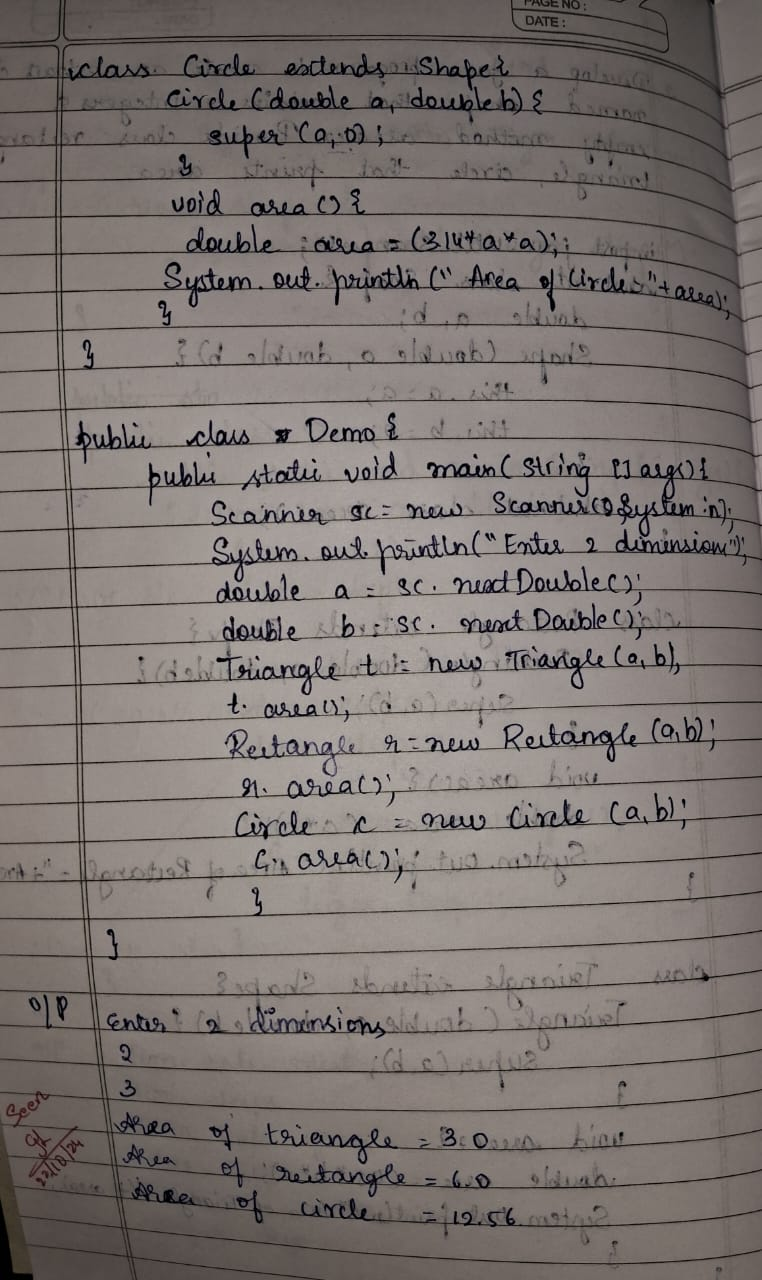 PAGE NO:
DATE:
class Circle extends Shape{
Circle (double a, double b) {
super (a, 0);
}
void area () {
double area = (3.14* a * a);
System. out. println (" Area of Circle = " + area);
}
}
public class Demo {
public static void main( String [] args) {
Scanner sc = new Scanner (System.in);
System. out. println (" Enter 2 dimension");
double a = sc. nextDouble();
double b = sc. next Double ();
Triangle t = new Triangle (a, b),
t. area();
Rectangle r = new Rectangle (a,b);
r. area();
Circle c = new Circle (a, b);
C. area();
}
}
O/P Enter 2 dimensions
2
3
Seen
22/10/24
Area of triangle = 3.0
Area of rectangle = 6.0
Area of circle = 12.56